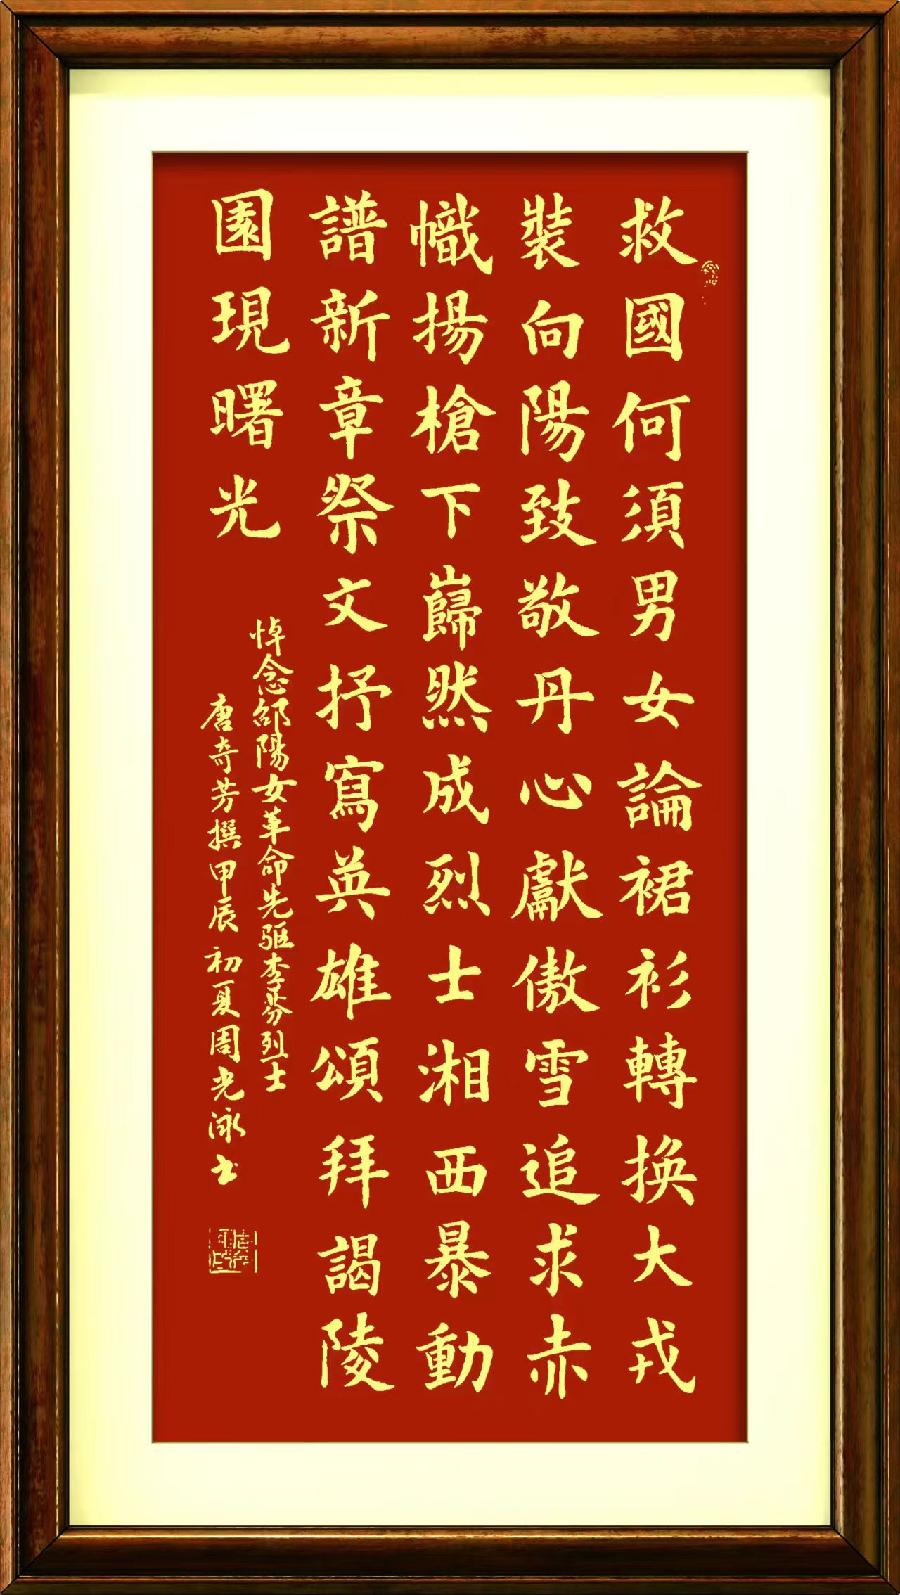 救國何須男女論裙衫轉換大戎
裝向陽致敬丹心獻傲雪追求赤
幟揚槍下巋然成烈士湘西暴動
譜新章祭文抒寫英雄頌拜謁陵
園現曙光
悼念邵陽女革命先驱李芬烈士
唐奇芳撰甲辰初夏周光泳书